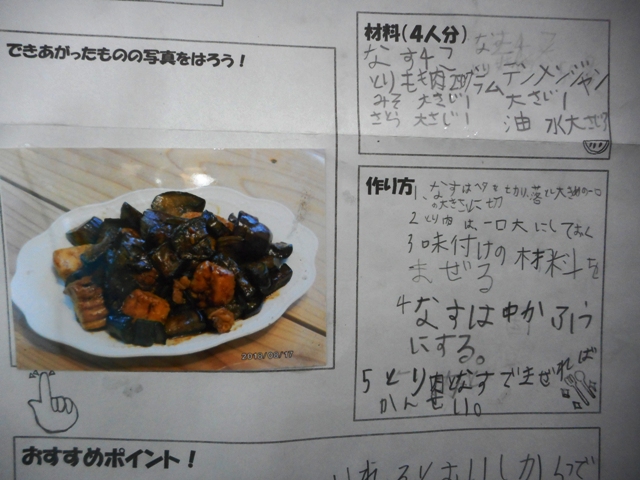 できあがったものの写真をはろう!
材料(4人分)
なす4コ
とりもも肉 グラム テンメンジャン
みそ 大さじ1 大さじ1
さとう 大さじ1 油 水大さじ3
作り方
1、なすはヘタを切り落とし大きめの一口
の大きさに切
2 とり肉は一口大にしておく
3 味付けの材料を
まぜる
4 なすは中かふう
にする。
5 とり肉となすでまぜれば
かんせい。
2018/08/17
おすすめポイント!